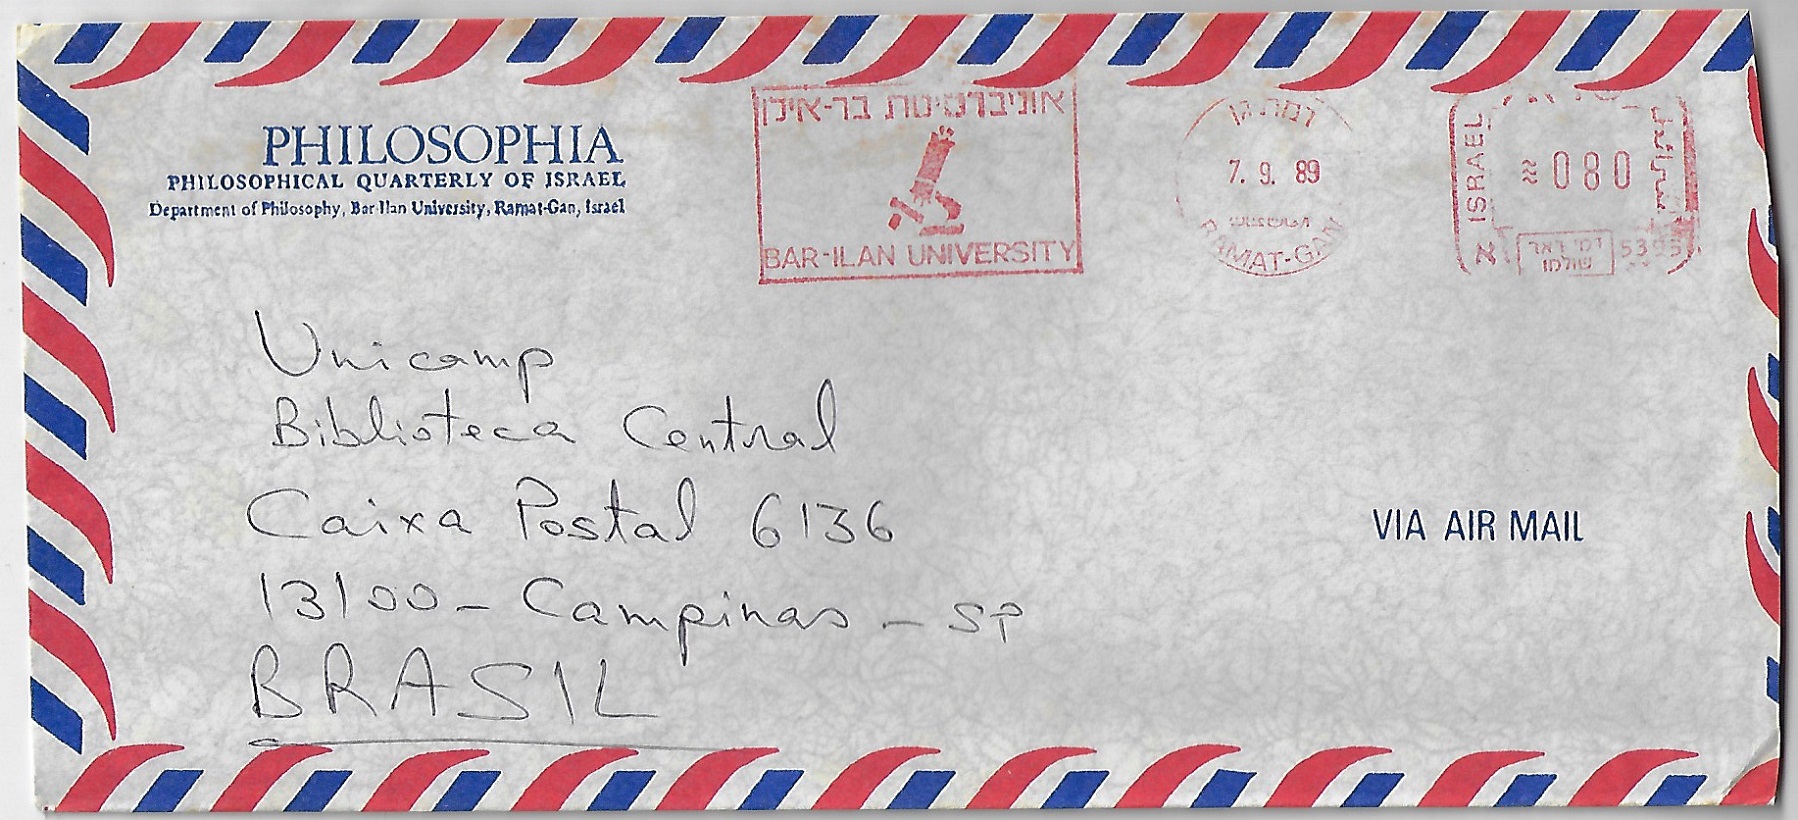 PHILOSOPHIA
PHILOSOPHICAL QUARTERLY OF ISRAEL
Department of Philosophy, Bar-Ilan University, Ramat-Gan, Israel
אוניברסיטת בר-אילן
BAR-ILAN UNIVERSITY
רמת גן
7. 9. 89
RAMAT-GAN
ISRAEL
080
א
דמי דאר
שולמו
5395
Unicamp
Biblioteca Central
Caixa Postal 6136
13100 - Campinas - SP
BRASIL
VIA AIR MAIL